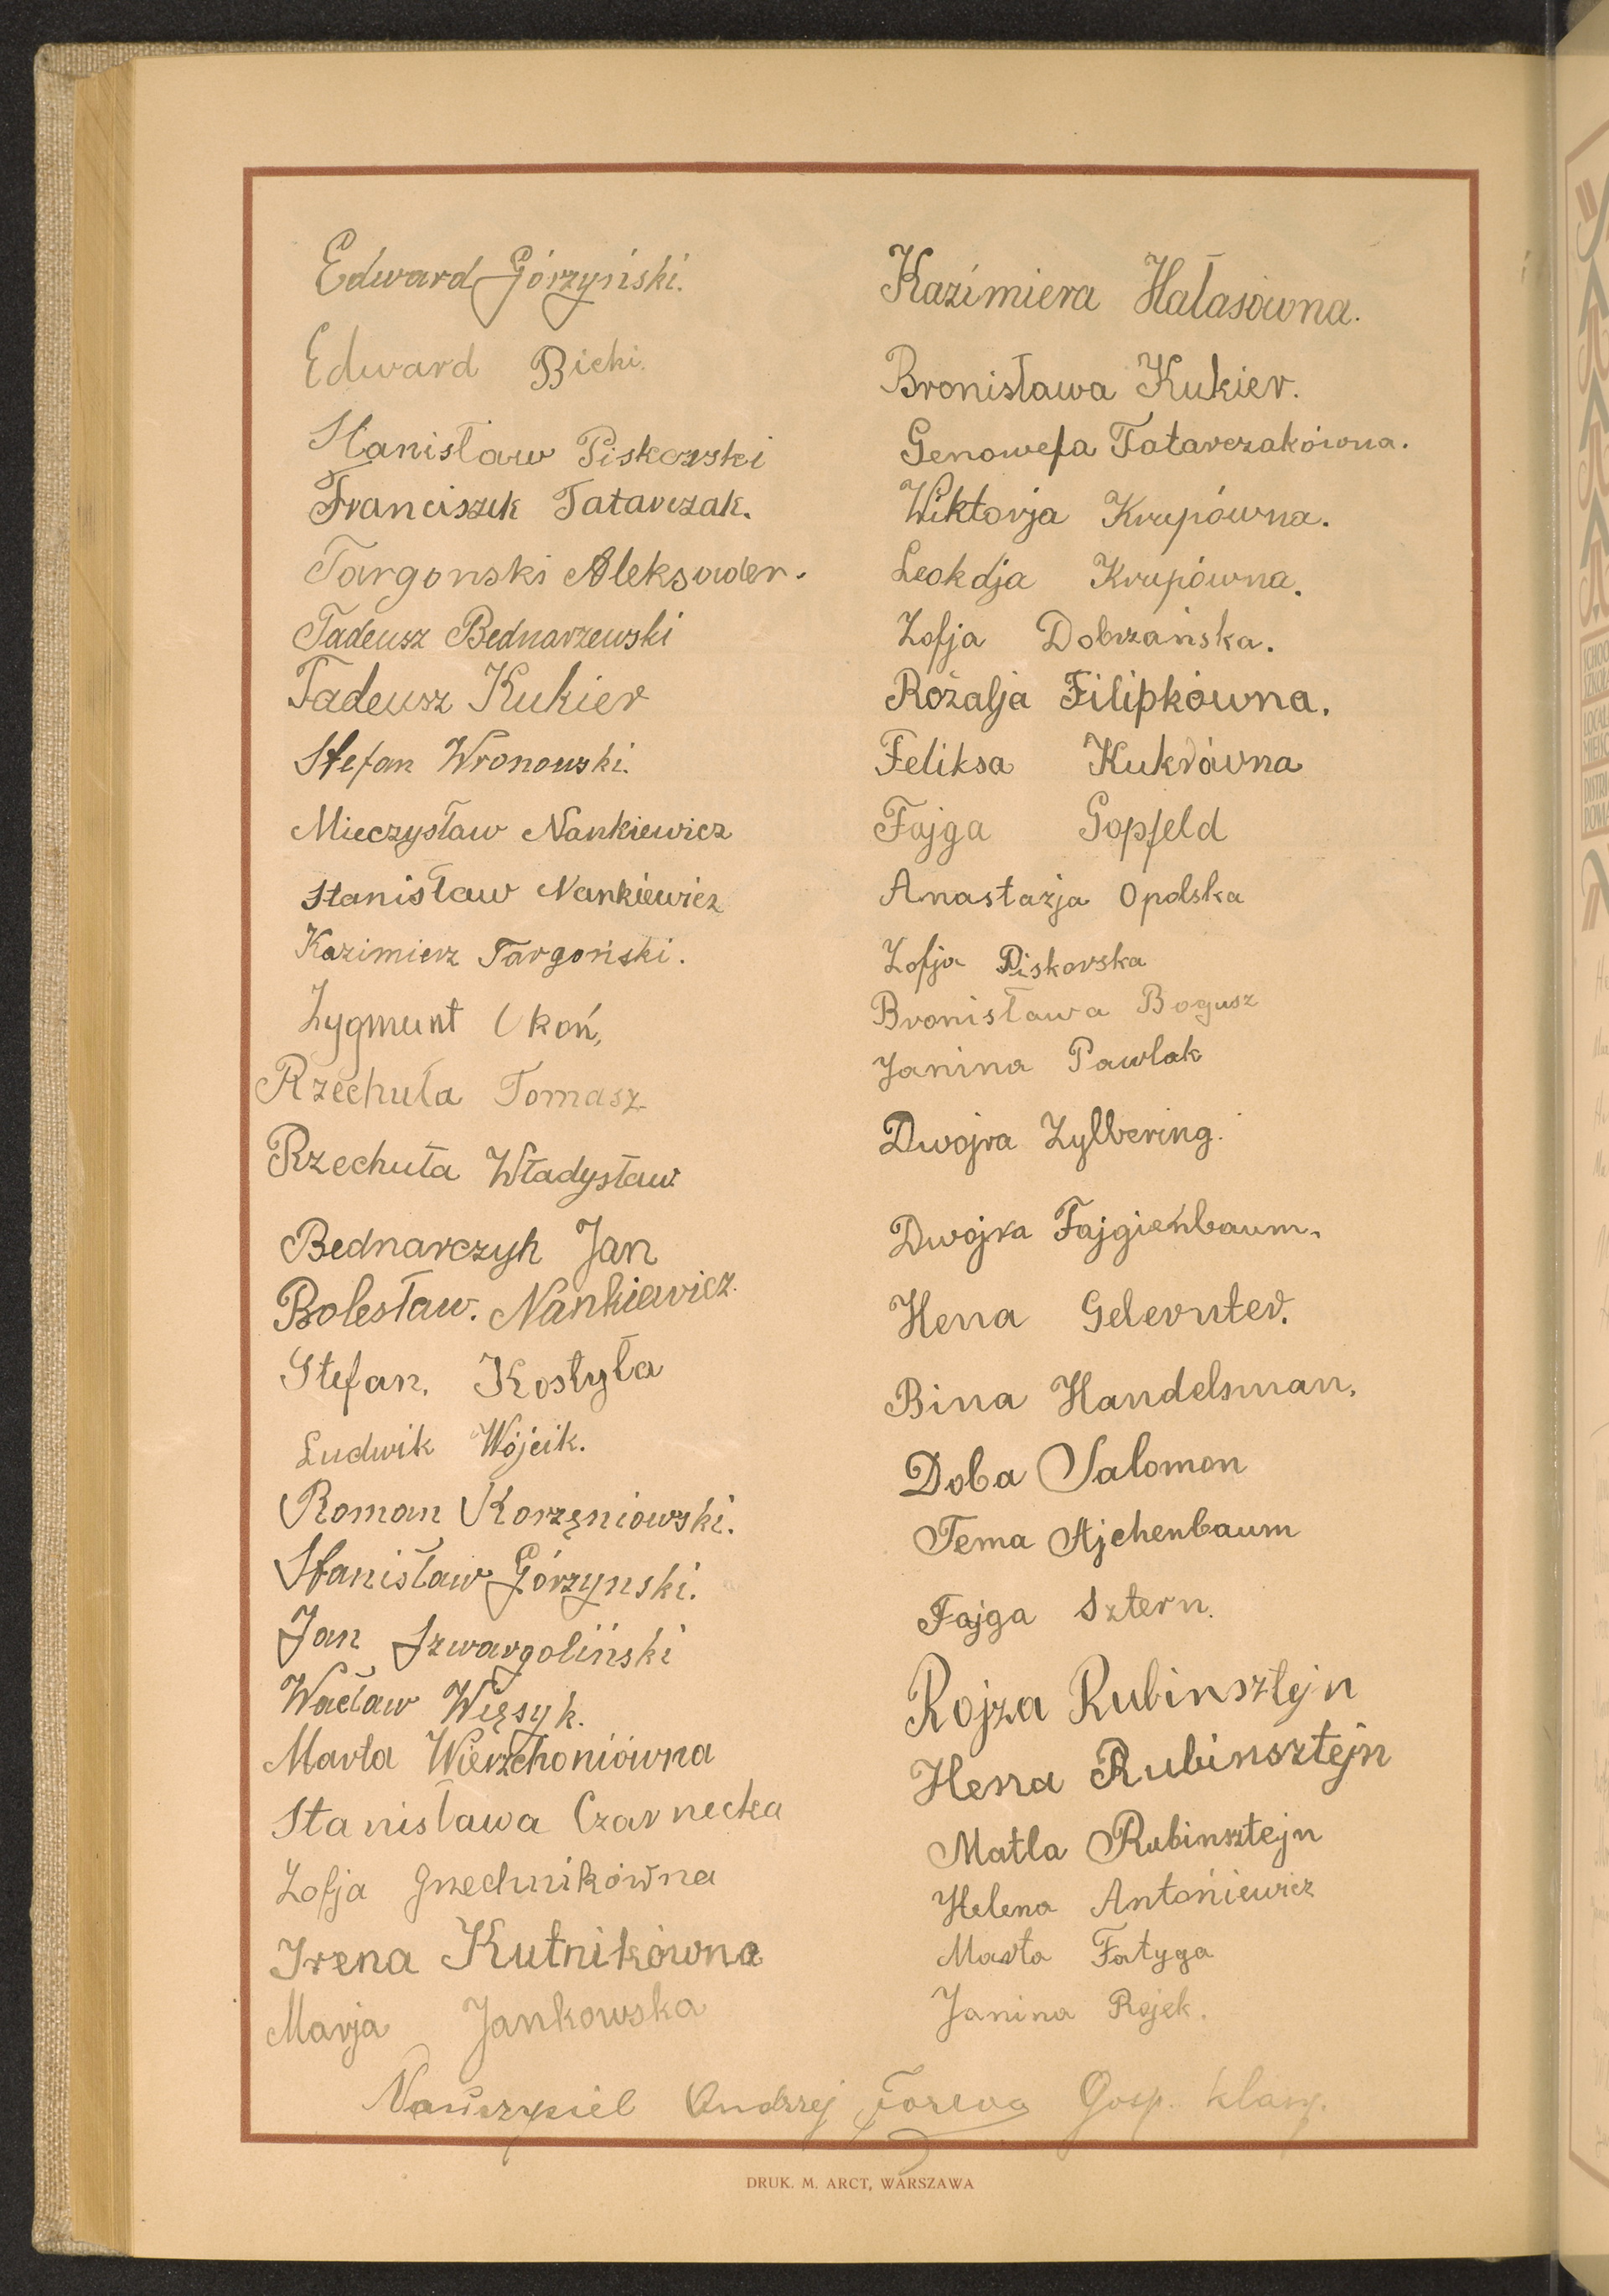 Edward Górzyński.
Edward Bicki.
Stanisław Piskorski
Franciszek Tatarczak.
Targonski Aleksander.
Tadeusz Bednarzewski
Tadeusz Kukier
Stefan Wronowski.
Mieczysław Nankiewicz
Stanisław Nankiewicz
Kazimierz Targoński.
Zygmunt Okoń,
Rzechuła Tomasz
Rzechuła Władysław
Bednarczyk Jan
Bolesław. Nankiewicz.
Stefan. Kostyła
Ludwik Wójcik.
Roman Korzęniowski.
Stanisław Górzynski.
Jan Szwargoliński
Wacław Więsyk.
Marta Wierzchoniówna
Stanisława Czarnecka
Zofja
Irena Kutnikówna
Marja Jankowska
Kazimiera Hałasówna.
Bronisława Kukier.
Genowefa Tatarczakówna.
Wiktorja Krupówna.
Leokdja Krupówna.
Zofja Dobrzańska.
Rozalja Filipkówna.
Feliksa Kukrówna
Fajga Gopfeld
Anastazja Opolska
Zofja Piskorska
Bronisława Bogusz
Janina Pawlak
Dwojra Zylbering.
Dwojra Fajgienbaum.
Hena Gelernter.
Bina Handelsman.
Doba Salomon
Tema Ajchenbaum
Fajga Sztern.
Rojza Rubinsztejn
Hena Rubinsztejn
Matla Rubinsztejn
Helena Antoniewicz
Marta Fatyga
Janina Rojek.
Nauczyciel Andrzej Gosp. klasy.
DRUK. M. ARCT, WARSZAWA